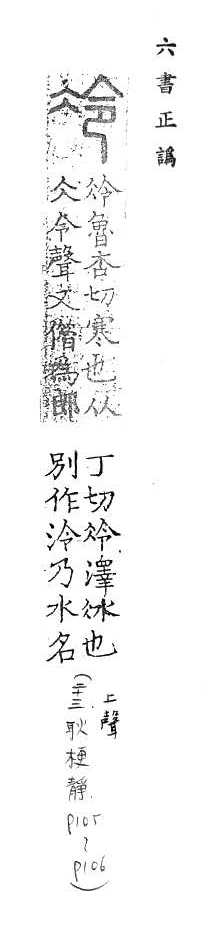 六書正譌
冷
冷魯杏切寒也从
仌令聲又借為郎
丁切冷澤冰也
別作泠乃水名
上聲
(二十三耿梗靜 p105~p106)